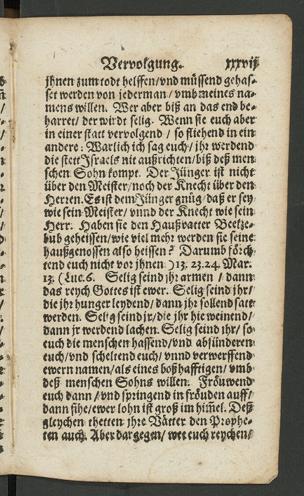 Vervolgung. xxxvij
jhnen zum todt helffen/vnd müssend gehas-
set werden von jederman / vmb meines na-
mens willen. Wer aber biß an das end be-
harret/ der wirdt selig. Wenn sie euch aber
in einer statt vervolgend / so fliehend in ein
andere: Warlich ich sag euch/ jhr werdend
die stett Israels nit außrichten/ biß deß men
schen Sohn kompt. Der Jünger ist nicht
über den Meister/noch der Knecht über den
Herren. Es ist dem Jünger gnůg/ daß er sey
wie sein Meister/ vnnd der Knecht wie sein
Herr. Haben sie den Haußvatter Beelze-
bub geheissen/wie viel mehr werden sie seine
haußgenossen also heissen? Darumb förch-
tend euch nicht vor jhnen )13. 23. 24. Mar.
13. (Luc. 6. Selig seind jhr armen / dann
das reych Gottes ist ewer. Selig seind jhr/
die jhr hunger leydend/ dann jhr sollend satt
werden. Selig seind jr/ die jhr hie weinend/
dann jr werdend lachen. Selig seind jhr/ so
euch die menschen hassend/vnd absünderen
euch/vnd scheltend euch/ vnnd verwerffend
ewern namen/als eines boßhafftigen/ vmb
deß menschen Sohns willen. Fröuwend
euch dann / vnd springend in fröuden auff/
dann sihe/ewer lohn ist groß im him̃el. Deß
gleychen thetten jhre Vätter den Prophe-
ten auch. Aber dargegen/ wee euch reychen/